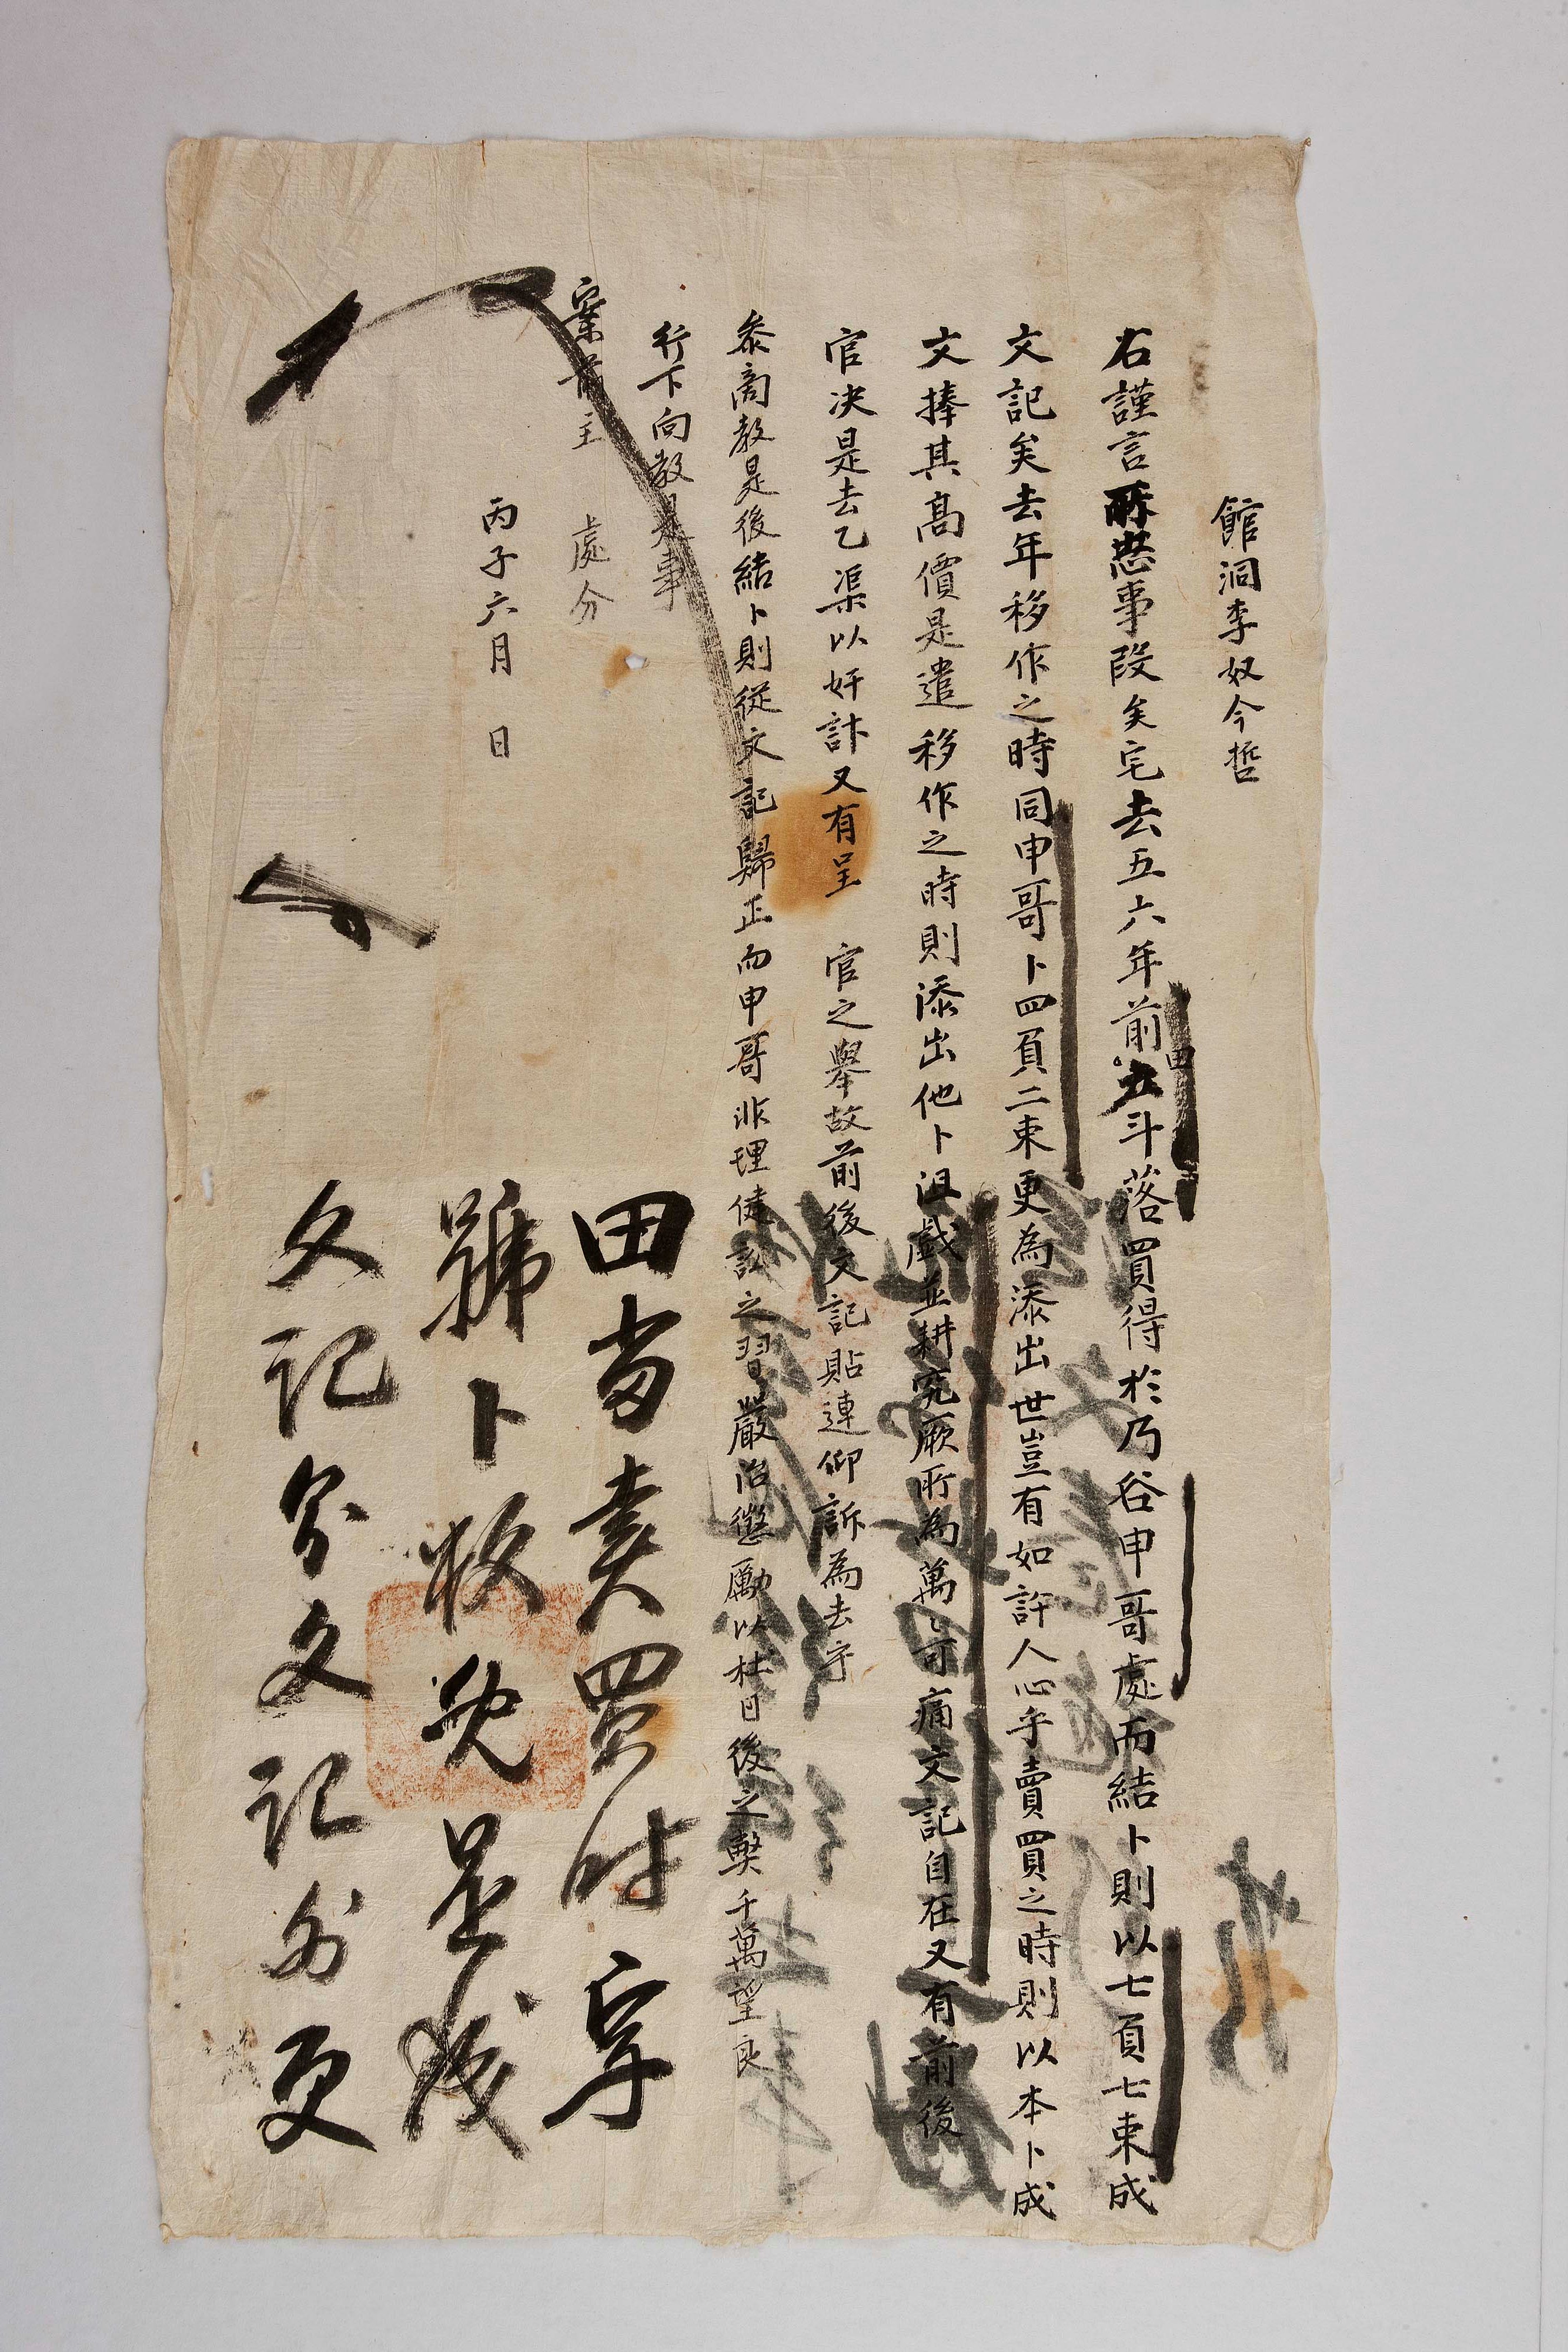 館洞李奴今哲
右謹言所恳事段矣宅去五六年前田五斗落買得於乃谷申哥處而結卜則以七負七束成
文記矣去年移作之時同申哥卜四負二束更為添出世豈有如許人心乎賣買之時則以本卜成
文捧其高價是遣移作之時則添出他卜沮戱並耕究厥所為萬〻可痛文記自在又有前後
官决是去乙渠以奸計又有呈 官之擧故前後文記貼連仰訴為去乎
叅商敎是後結卜則從文記歸正而申哥非理健訟之習嚴治懲勵以杜日後之弊千萬望良
行下向敎是事
案前主 處分
丙子六月 日
田畓賣買時字
號卜數既是成
文記分文記外更